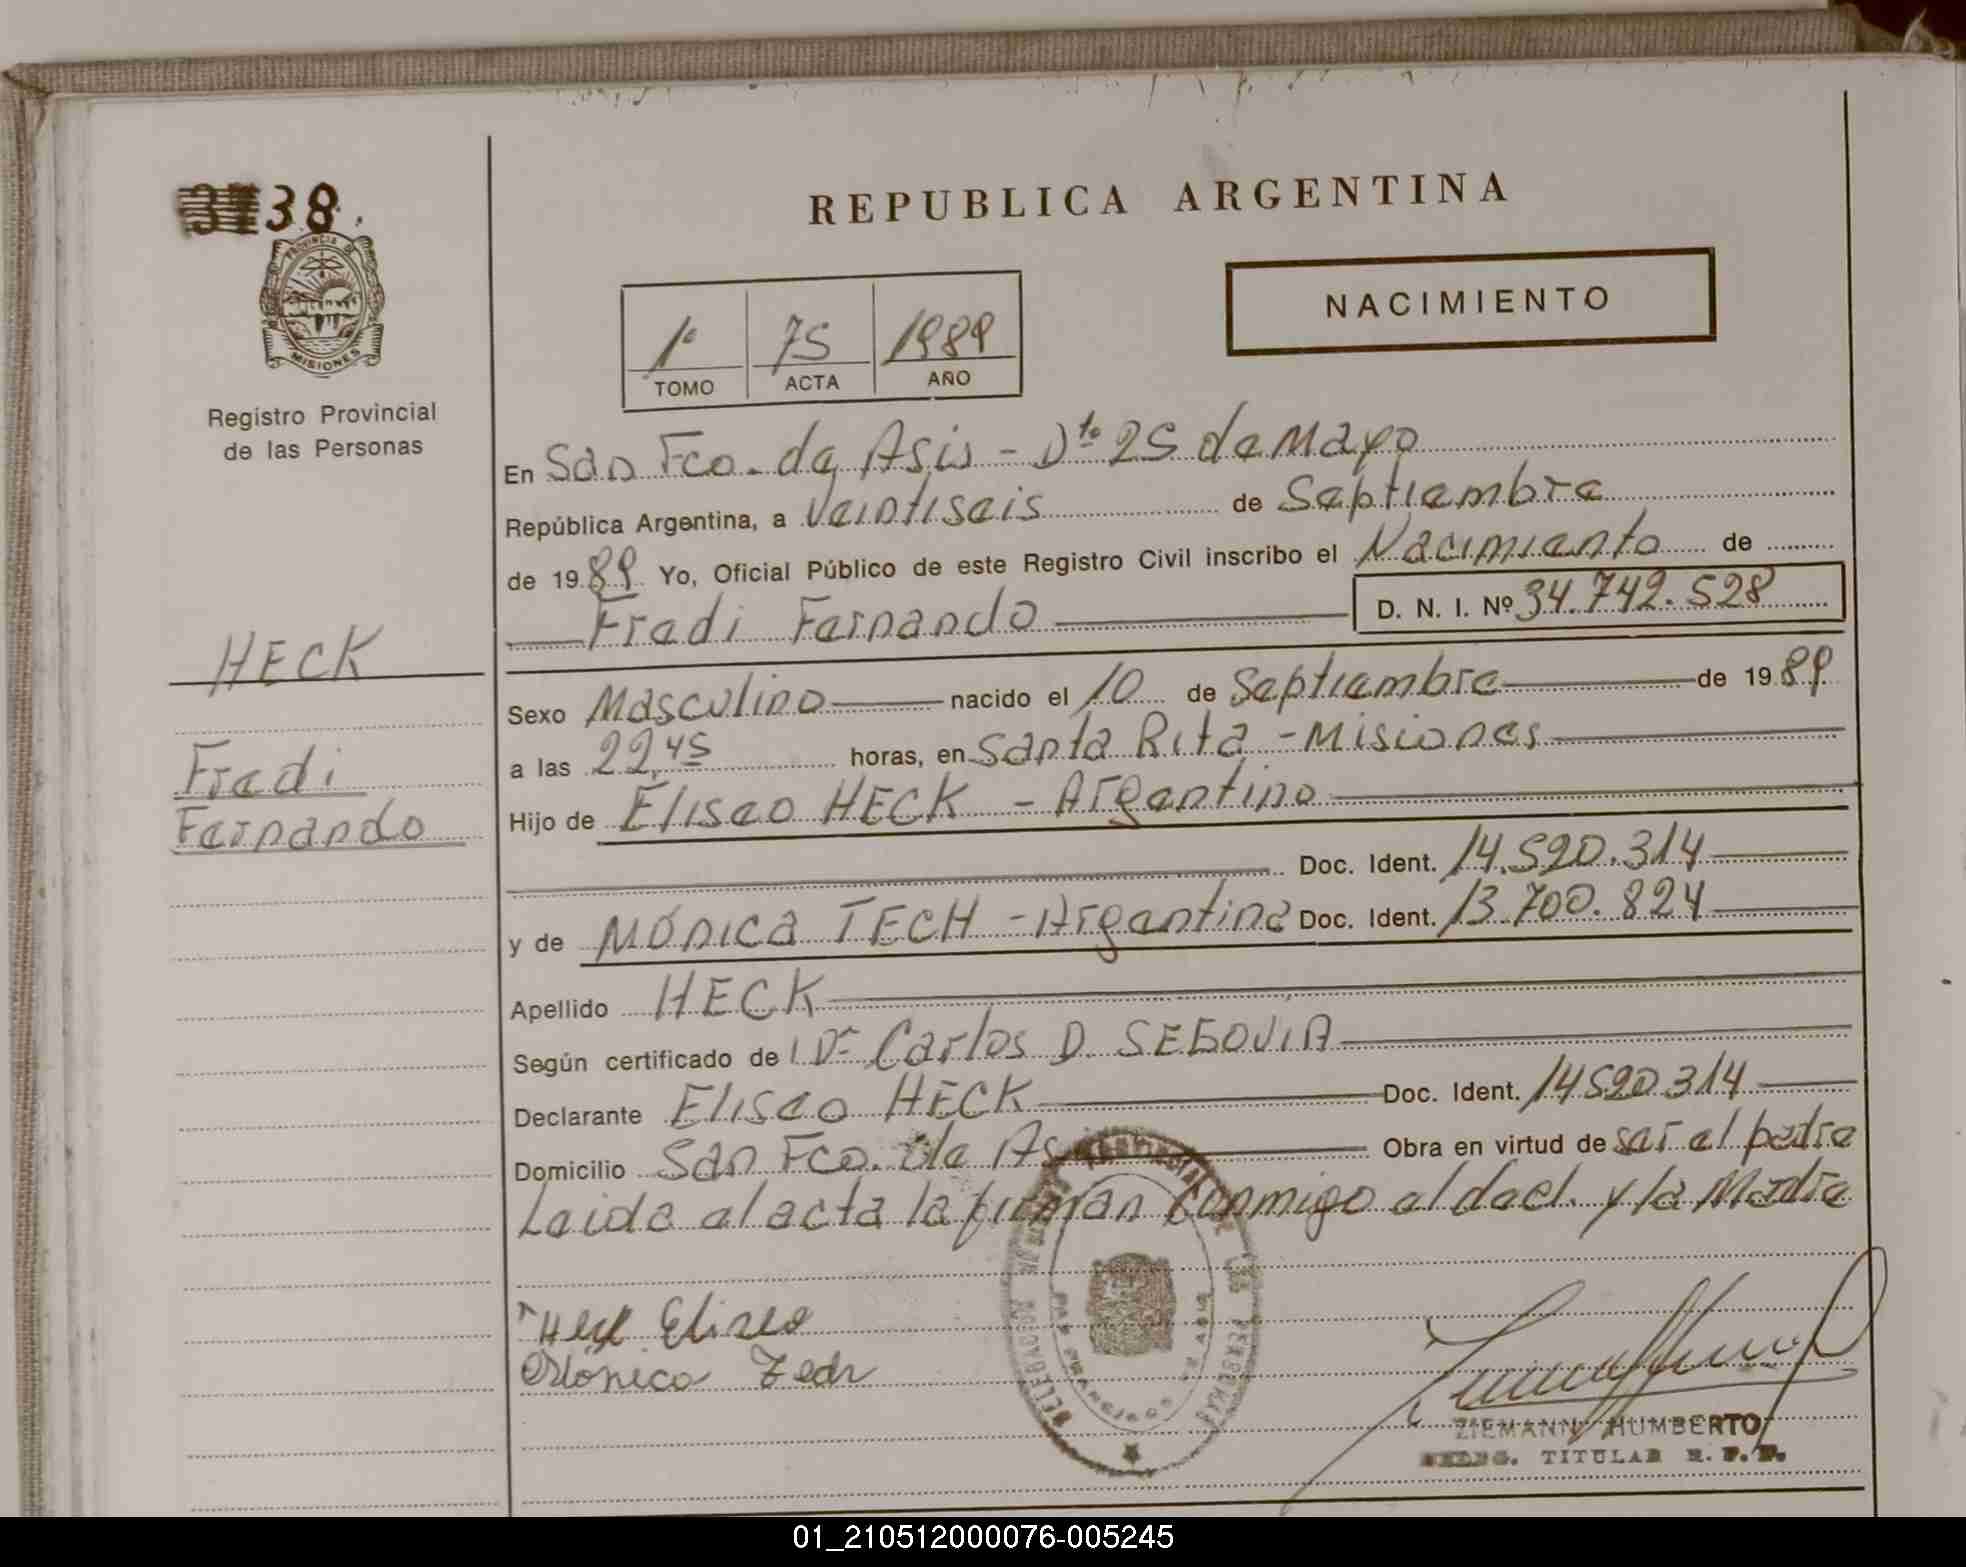 38.
PROVINCIA DE
MISIONES
Registro Provincial
de las Personas
HECK
Fredi
Fernando
REPUBLICA ARGENTINA
NACIMIENTO
1º 75 1989
TOMO ACTA AÑO
En San Fco. de Asis - Dto 25 de Mayo
República Argentina, a Veintiseis de Septiembre
de 1989 Yo, Oficial Público de este Registro Civil inscribo el Nacimiento de
Fredi Fernando D. N. I. Nº 34.742.528
Sexo Masculino nacido el 10 de Septiembre de 1989
a las 22,45 horas, en Santa Rita - Misiones
Hijo de Eliseo HECK - Argentino
Doc. Ident. 14.520.314
y de MÓNICA TECH - Argentina Doc. Ident. 13.700.824
Apellido HECK
Según certificado de Dr Carlos D. SEGOVIA
Declarante Eliseo HECK Doc. Ident. 14520314
Domicilio San Fco. de As Obra en virtud de ser el padre
Leida el acta la firman conmigo el decl. y la Madre
Heck Eliseo
Mónica Tech
ZIEMANN HUMBERTO
DELEG. TITULAR R. P. P.
01_210512000076-005245